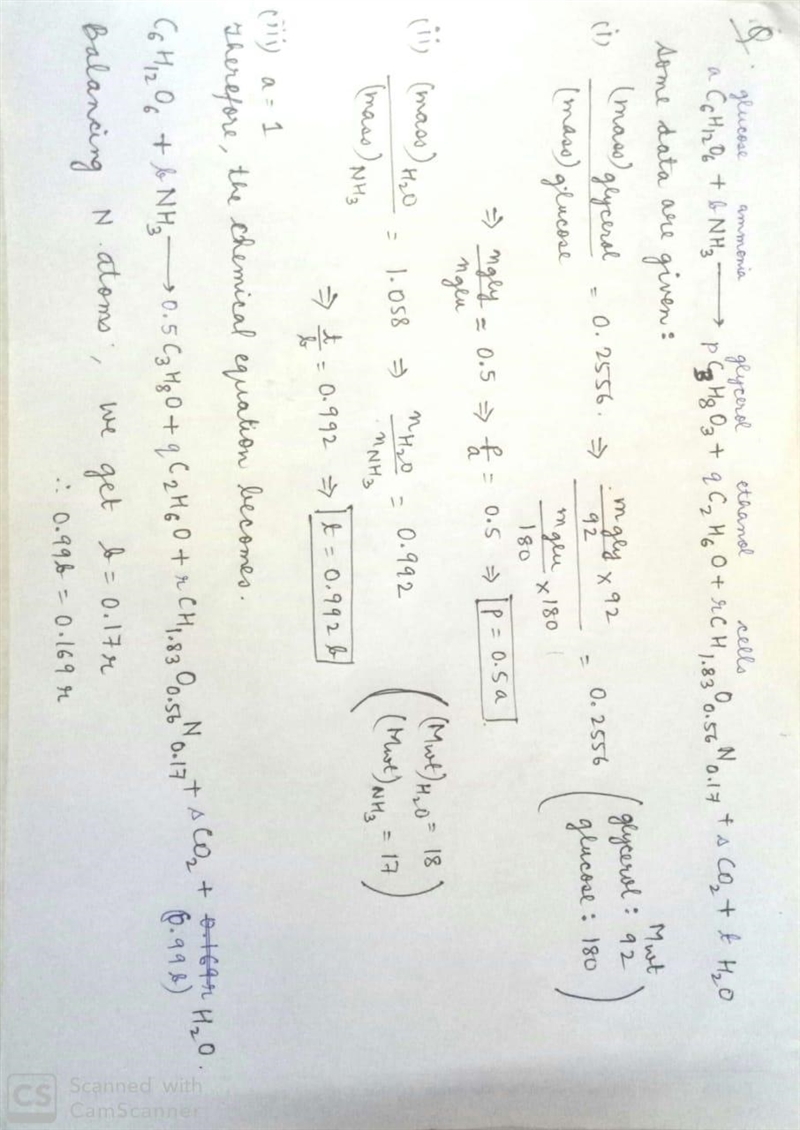 Q.
glucose ammonia glycerol ethanol cells
a C6H12O6 + b NH3 → p C3H8O3 + q C2H6O + r CH1.83 O0.56 N0.17 + s CO2 + t H2O
Some data are given:
(i) (mass)glycerol / (mass)glucose = 0.2556. ⇒ (mgly/92 × 92) / (mglu/180 × 180) = 0.2556 (Mwt glycerol: 92 glucose: 180)
⇒ ngly/nglu = 0.5 ⇒ p/a = 0.5 ⇒ p = 0.5a
(ii) (mass)H2O / (mass)NH3 = 1.058 ⇒ nH2O / nNH3 = 0.992 ((Mwt)H2O = 18 (Mwt)NH3 = 17)
⇒ t/b = 0.992 ⇒ t = 0.992 b
(iii) a = 1
Therefore, the chemical equation becomes.
C6H12O6 + b NH3 → 0.5 C3H8O + q C2H6O + r CH1.83 O0.56 N0.17 + s CO2 + 0.169r H2O.
(0.99b)
Balancing N atoms, we get b = 0.17r
∴ 0.99b = 0.169 r
CS Scanned with
CamScanner